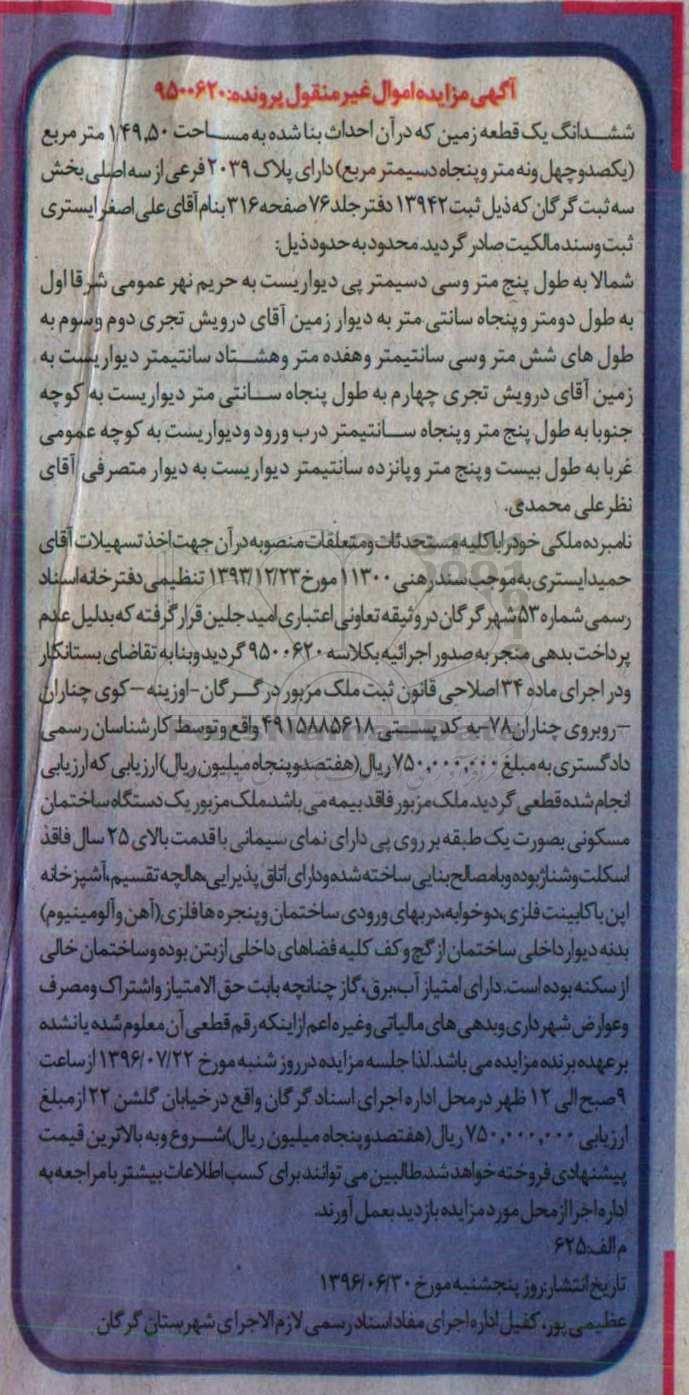 آگهی مزایده اموال غیر منقول پرونده: ۹۵۰۰۶۲۰
ششدانگ یک قطعه زمین که در آن احداث بنا شده به مساحت ۱۴۹،۵۰ متر مربع
(یکصدو چهل ونه متر و پنجاه دسیمتر مربع) دارای پلاک ۲۰۳۹ فرعی از سه اصلی بخش
سه ثبت گرگان که ذیل ثبت ۱۳۹۴۲ دفتر جلد ۷۶ صفحه ۳۱۶ بنام آقای علی اصغر ایستری
ثبت وسند مالکیت صادر گردید. محدود به حدود ذیل:
شمالا به طول پنج متر وسی دسیمتر پی دیواریست به حریم نهر عمومی شرقا اول
به طول دومتر وپنجاه سانتی متر به دیوار زمین آقای درویش تجری دوم وسوم به
طول های شش متر وسی سانتیمتر وهفده متر وهشتاد سانتیمتر دیواریست به
زمین آقای درویش تجری چهارم به طول پنجاه سانتی متر دیواریست به کوچه
جنوبا به طول پنج متر وپنجاه سانتیمتر درب ورود ودیواریست به کوچه عمومی
غربا به طول بیست وپنج متر وپانزده سانتیمتر دیواریست به دیوار متصرفی آقای
نظر علی محمدی.
نامبرده ملکی خود را باکلیه مستحدثات ومتعلقات منصوبه در آن جهت اخذ تسهیلات آقای
حمید ایستری به موجب سند رهنی ۱۱۳۰۰ مورخ ۱۳۹۳/۱۲/۲۳ تنظیمی دفتر خانه اسناد
رسمی شماره ۵۳ شهر گرگان در وثیقه تعاونی اعتباری امید جلین قرار گرفته که بدلیل عدم
پرداخت بدهی منجر به صدور اجرائیه بکلاسه ۹۵۰۰۶۲۰ گردید وبنا به تقاضای بستانکار
ودر اجرای ماده ۳۴ اصلاحی قانون ثبت ملک مزبور در گرگان-اوزینه – کوی چناران
– روبروی چناران ۷۸-به کد پستی ۴۹۱۵۸۸۵۶۱۸ واقع وتوسط کارشناسان رسمی
دادگستری به مبلغ ۷۵۰،۰۰۰،۰۰۰ ریال(هفتصدو پنجاه میلیون ریال) ارزیابی که ارزیابی
انجام شده قطعی گردید. ملک مزبور فاقد بیمه می باشد. ملک مزبور یک دستگاه ساختمان
مسکونی بصورت یک طبقه بر روی پی دارای نمای سیمانی با قدمت بالای ۲۵ سال فاقد
اسکلت وشناژ بوده وبامصالح بنایی ساخته شده ودارای اتاق پذیرایی،هالچه تقسیم،آشپزخانه
اپن باکابینت فلزی،دوخوابه،دربهای ورودی ساختمان وپنجره ها فلزی(آهن وآلومینیوم)
بدنه دیوار داخلی ساختمان از گچ وکف کلیه فضاهای داخلی از بتن بوده وساختمان خالی
از سکنه بوده است. دارای امتیاز آب،برق،گاز چنانچه بابت حق الامتیاز واشتراک ومصرف
وعوارض شهرداری وبدهی های مالیاتی وغیره اعم از اینکه رقم قطعی آن معلوم شده یا نشده
بر عهده برنده مزایده می باشد.لذا جلسه مزایده در روز شنبه مورخ ۱۳۹۶/۰۷/۲۲ از ساعت
۹ صبح الی ۱۲ ظهر در محل اداره اجرای اسناد گرگان واقع در خیابان گلشن ۲۲ از مبلغ
ارزیابی ۷۵۰،۰۰۰،۰۰۰ ریال(هفتصدوپنجاه میلیون ریال)شروع وبه بالاترین قیمت
پیشنهادی فروخته خواهد شد.طالبین می توانند برای کسب اطلاعات بیشتر بامراجعه به
اداره اجرا از محل مورد مزایده بازدید بعمل آورند.
م الف:۶۲۵
تاریخ انتشار:روز پنجشنبه مورخ ۱۳۹۶/۰۶/۳۰
عظیمی پور، کفیل اداره اجرای مفاد اسناد رسمی لازم الاجرای شهرستان گرگان